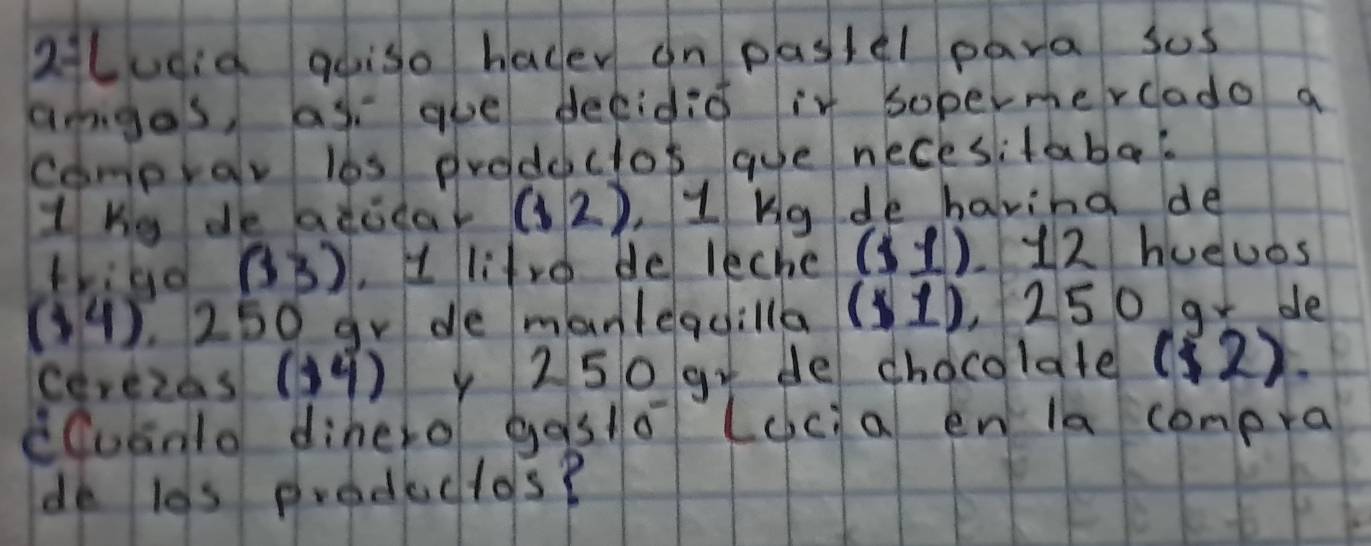 2-Lucia quiso hacer un pastel para sus
amigos, así que decidió ir supermercado a
comprar los productos que necesitaba:
1 Kg de azúcar ($2), 1 Kg de harina de
trigo ($3), 1 litro de leche ($1). 12 huevos
($4). 250 gr de mantequilla ($1), 250 gr de
cerezas ($4) y 250 gr de chocolate ($2).
¿Cuánto dinero gastó Lucia en la compra
de los productos?